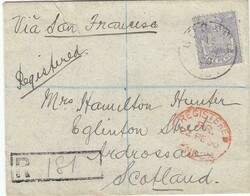 Via San Francisco
Registered
Mrs Hamilton Hunter
Eglinton Street
Ardrossan
Scotland.
REGISTERED
R 181